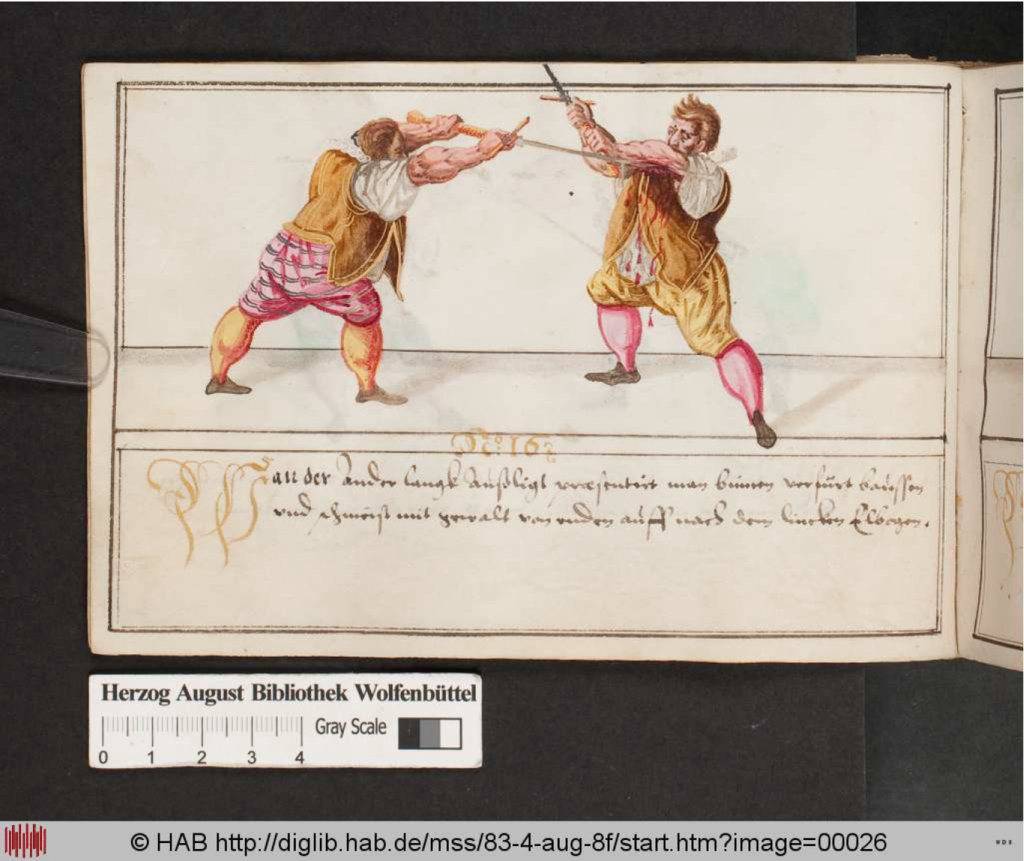 No: 16
Wan der Ander langk Außligt præsentirt man binnen verfürt baussen
vnd schmeist mit gewalt von vnden auff nach dem lincken Elbogen.
Herzog August Bibliothek Wolfenbüttel
Gray Scale
0 1 2 3 4
© HAB http://diglib.hab.de/mss/83-4-aug-8f/start.htm?image=00026